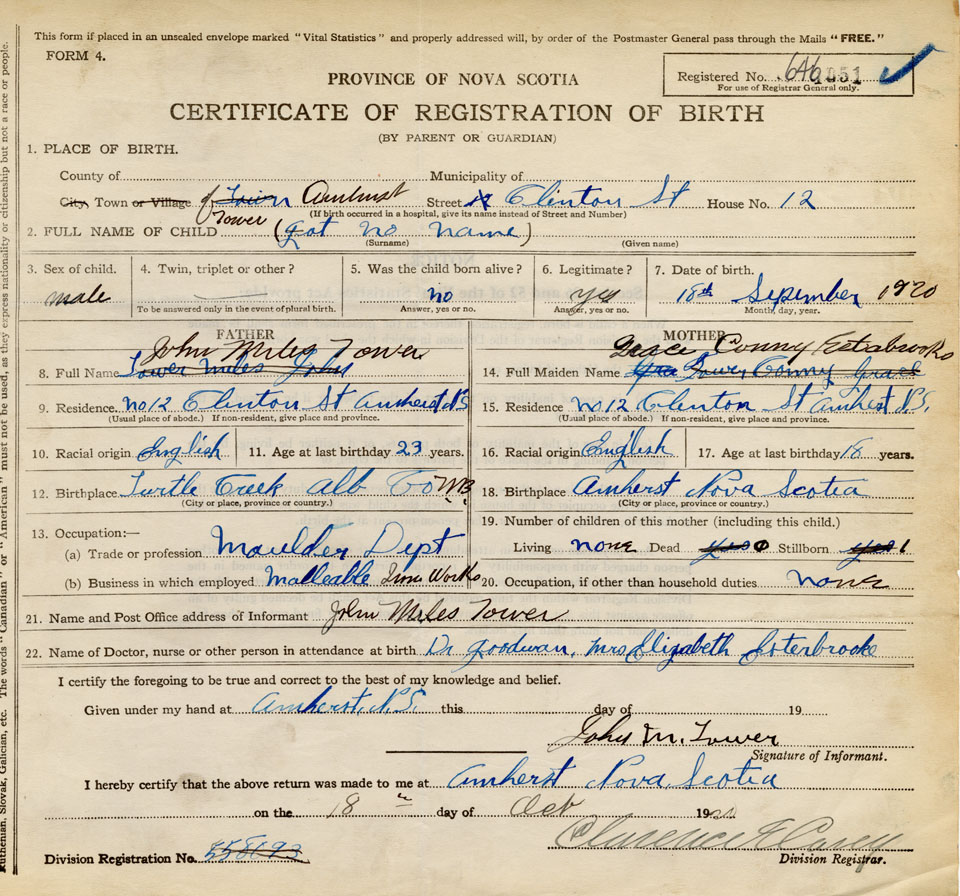 This form if placed in an unsealed envelope marked "Vital Statistics" and properly addressed will, by order of the Postmaster General pass through the Mails "FREE."
FORM 4.
PROVINCE OF NOVA SCOTIA
Registered No. 646 1051
For use of Registrar General only.
CERTIFICATE OF REGISTRATION OF BIRTH
(BY PARENT OR GUARDIAN)
1. PLACE OF BIRTH.
County of Municipality of
City, Town or Village of Town Amherst Street Clinton St House No. 12
(If birth occurred in a hospital, give its name instead of Street and Number)
Tower
2. FULL NAME OF CHILD (got no name)
(Surname) (Given name)
3. Sex of child. 4. Twin, triplet or other? 5. Was the child born alive? 6. Legitimate? 7. Date of birth.
male no yes 18th September 1920
To be answered only in the event of plural birth. Answer, yes or no. Answer, yes or no. Month, day, year.
FATHER MOTHER
John Miles Tower Grace Conny Estabrooks
8. Full Name Tower Miles John 14. Full Maiden Name Tower, Conny Grace
9. Residence. No 12 Clinton St Amherst N.S 15. Residence No 12 Clinton St Amherst N.S.
(Usual place of abode.) If non-resident, give place and province. (Usual place of abode.) If non-resident, give place and province.
10. Racial origin English 11. Age at last birthday 23 years. 16. Racial origin English 17. Age at last birthday 18 years.
12. Birthplace Turtle Creek Alb Co NB 18. Birthplace Amherst Nova Scotia
(City or place, province or country.) (City or place, province or country.)
13. Occupation:— 19. Number of children of this mother (including this child.)
(a) Trade or profession Moulder Dept Living none Dead yes 0 Stillborn yes 1
(b) Business in which employed Malleable Iron Works 20. Occupation, if other than household duties none
21. Name and Post Office address of Informant John Miles Tower
22. Name of Doctor, nurse or other person in attendance at birth Dr Goodwan, Mrs Elizabeth Esterbrooke
I certify the foregoing to be true and correct to the best of my knowledge and belief.
Given under my hand at Amherst, N.S. this day of 19
John M. Tower
Signature of Informant.
I hereby certify that the above return was made to me at Amherst Nova Scotia
on the 18 day of Oct 1920
Clarence F Casey
Division Registration No. Division Registrar.
Ruthenian, Slovak, Galician, etc. The words "Canadian" or "American" must not be used, as they express nationality or citizenship but not a race or people.